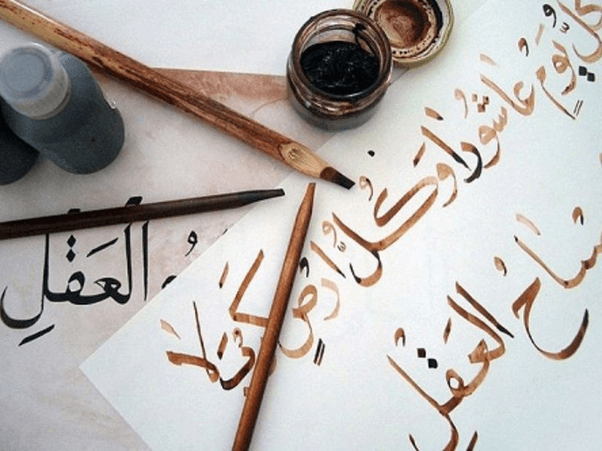 كلُّ يَومٍ عَاشُورا وَكُلُّ اَرضٍ كَربَلا
العَقلِ
العَقلِ